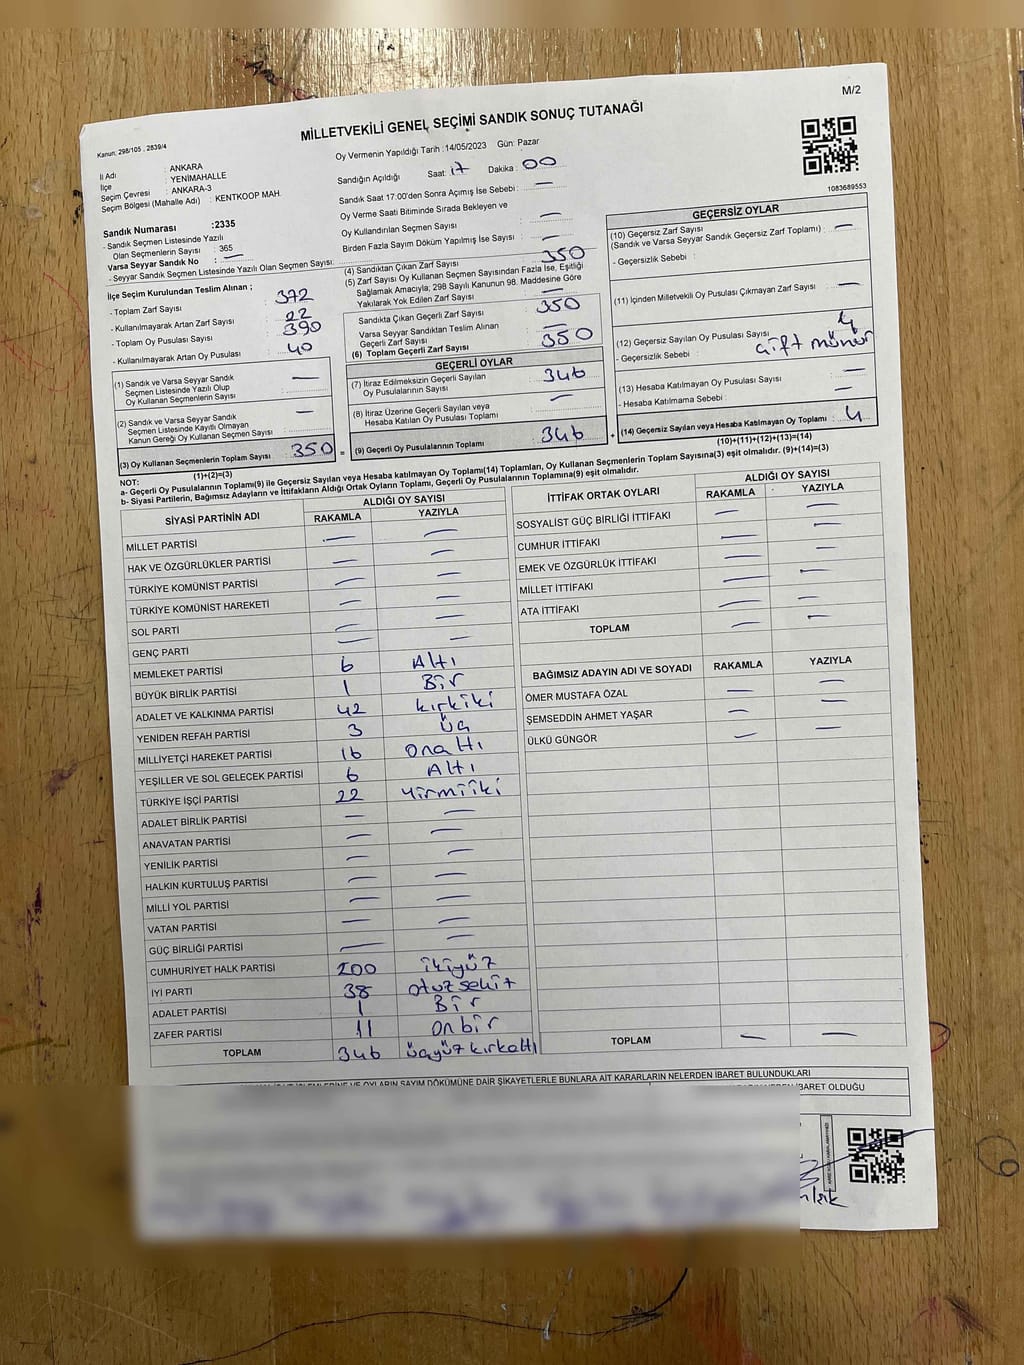 M/2
MİLLETVEKİLİ GENEL SEÇİMİ SANDIK SONUÇ TUTANAĞI
Kanun: 298/105 , 2839/4
Oy Vermenin Yapıldığı Tarih : 14/05/2023 Gün: Pazar
İl Adı : ANKARA
İlçe : YENİMAHALLE
Seçim Çevresi : ANKARA-3
Seçim Bölgesi (Mahalle Adı) : KENTKOOP MAH.
Sandığın Açıldığı Saat: 17 Dakika : 00
Sandık Saat 17:00'den Sonra Açımış İse Sebebi : —
Oy Verme Saati Bitiminde Sırada Bekleyen ve
Oy Kullandırılan Seçmen Sayısı : —
Birden Fazla Sayım Döküm Yapılmış İse Sayısı : —
1083689553
Sandık Numarası :2335
- Sandık Seçmen Listesinde Yazılı
Olan Seçmenlerin Sayısı : 365
Varsa Seyyar Sandık No : —
- Seyyar Sandık Seçmen Listesinde Yazılı Olan Seçmen Sayısı:
İlçe Seçim Kurulundan Teslim Alınan ;
- Toplam Zarf Sayısı : 372
- Kullanılmayarak Artan Zarf Sayısı : 22
- Toplam Oy Pusulası Sayısı : 390
- Kullanılmayarak Artan Oy Pusulası : 40
(1) Sandık ve Varsa Seyyar Sandık
Seçmen Listesinde Yazılı Olup
Oy Kullanan Seçmenlerin Sayısı : —
(2) Sandık ve Varsa Seyyar Sandık
Seçmen Listesinde Kayıtlı Olmayan
Kanun Gereği Oy Kullanan Seçmen Sayısı : —
(3) Oy Kullanan Seçmenlerin Toplam Sayısı : 350
(1)+(2)=(3)
(4) Sandıktan Çıkan Zarf Sayısı : 350
(5) Zarf Sayısı Oy Kullanan Seçmen Sayısından Fazla İse, Eşitliği
Sağlamak Amacıyla; 298 Sayılı Kanunun 98. Maddesine Göre
Yakılarak Yok Edilen Zarf Sayısı : —
Sandıkta Çıkan Geçerli Zarf Sayısı : 350
Varsa Seyyar Sandıktan Teslim Alınan
Geçerli Zarf Sayısı : —
(6) Toplam Geçerli Zarf Sayısı : 350
GEÇERLİ OYLAR
(7) İtiraz Edilmeksizin Geçerli Sayılan
Oy Pusulalarının Sayısı : 346
(8) İtiraz Üzerine Geçerli Sayılan veya
Hesaba Katılan Oy Pusulası Toplamı : —
= (9) Geçerli Oy Pusulalarının Toplamı : 346 +
GEÇERSİZ OYLAR
(10) Geçersiz Zarf Sayısı
(Sandık ve Varsa Seyyar Sandık Geçersiz Zarf Toplamı) : —
- Geçersizlik Sebebi :
(11) İçinden Milletvekili Oy Pusulası Çıkmayan Zarf Sayısı : —
(12) Geçersiz Sayılan Oy Pusulası Sayısı : 4
- Geçersizlik Sebebi : çift mühür
(13) Hesaba Katılmayan Oy Pusulası Sayısı : —
- Hesaba Katılmama Sebebi : —
(14) Geçersiz Sayılan veya Hesaba Katılmayan Oy Toplamı : 4
(10)+(11)+(12)+(13)=(14)
NOT:
a- Geçerli Oy Pusulalarının Toplamı(9) ile Geçersiz Sayılan veya Hesaba katılmayan Oy Toplamı(14) Toplamları, Oy Kullanan Seçmenlerin Toplam Sayısına(3) eşit olmalıdır. (9)+(14)=(3)
b- Siyasi Partilerin, Bağımsız Adayların ve İttifakların Aldığı Ortak Oyların Toplamı, Geçerli Oy Pusulalarının Toplamına(9) eşit olmalıdır.
SİYASİ PARTİNİN ADI ALDIĞI OY SAYISI
RAKAMLA YAZIYLA
MİLLET PARTİSİ — —
HAK VE ÖZGÜRLÜKLER PARTİSİ — —
TÜRKİYE KOMÜNİST PARTİSİ — —
TÜRKİYE KOMÜNİST HAREKETİ — —
SOL PARTİ — —
GENÇ PARTİ — —
MEMLEKET PARTİSİ 6 Altı
BÜYÜK BİRLİK PARTİSİ 1 Bir
ADALET VE KALKINMA PARTİSİ 42 kırkiki
YENİDEN REFAH PARTİSİ 3 üç
MİLLİYETÇİ HAREKET PARTİSİ 16 onaltı
YEŞİLLER VE SOL GELECEK PARTİSİ 6 Altı
TÜRKİYE İŞÇİ PARTİSİ 22 Yirmiiki
ADALET BİRLİK PARTİSİ — —
ANAVATAN PARTİSİ — —
YENİLİK PARTİSİ — —
HALKIN KURTULUŞ PARTİSİ — —
MİLLİ YOL PARTİSİ — —
VATAN PARTİSİ — —
GÜÇ BİRLİĞİ PARTİSİ — —
CUMHURİYET HALK PARTİSİ 200 ikiyüz
İYİ PARTİ 38 otuzsekiz
ADALET PARTİSİ 1 Bir
ZAFER PARTİSİ 11 onbir
TOPLAM 346 üçyüzkırkaltı
İTTİFAK ORTAK OYLARI ALDIĞI OY SAYISI
RAKAMLA YAZIYLA
SOSYALİST GÜÇ BİRLİĞİ İTTİFAKI — —
CUMHUR İTTİFAKI — —
EMEK VE ÖZGÜRLÜK İTTİFAKI — —
MİLLET İTTİFAKI — —
ATA İTTİFAKI — —
TOPLAM — —
BAĞIMSIZ ADAYIN ADI VE SOYADI RAKAMLA YAZIYLA
ÖMER MUSTAFA ÖZAL — —
ŞEMSEDDİN AHMET YAŞAR — —
ÜLKÜ GÜNGÖR — —
TOPLAM — —
İŞLEMLERİNE VE OYLARIN SAYIM DÖKÜMÜNE DAİR ŞİKAYETLERLE BUNLARA AİT KARARLARIN NELERDEN İBARET BULUNDUKLARI
İBARET OLDUĞU